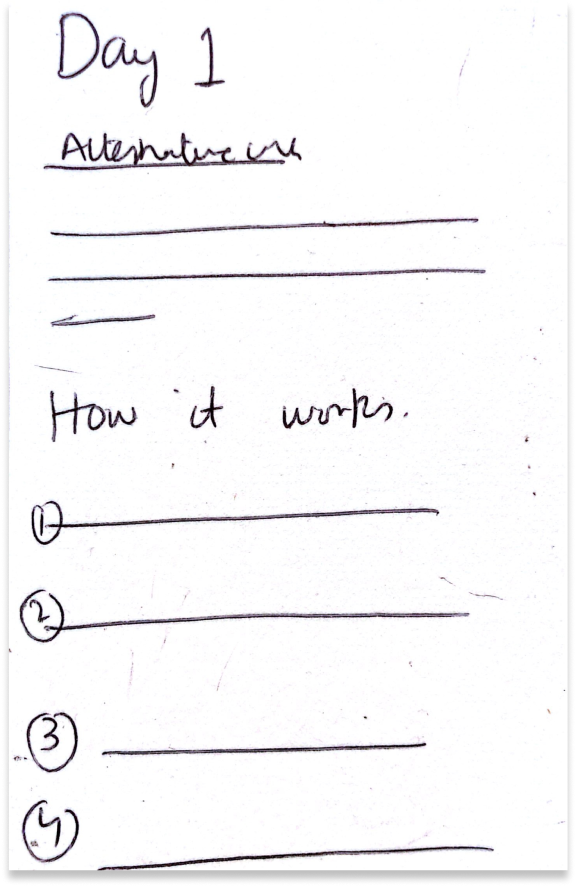 Day 1
Alternative
How it works.
1
2
3
4